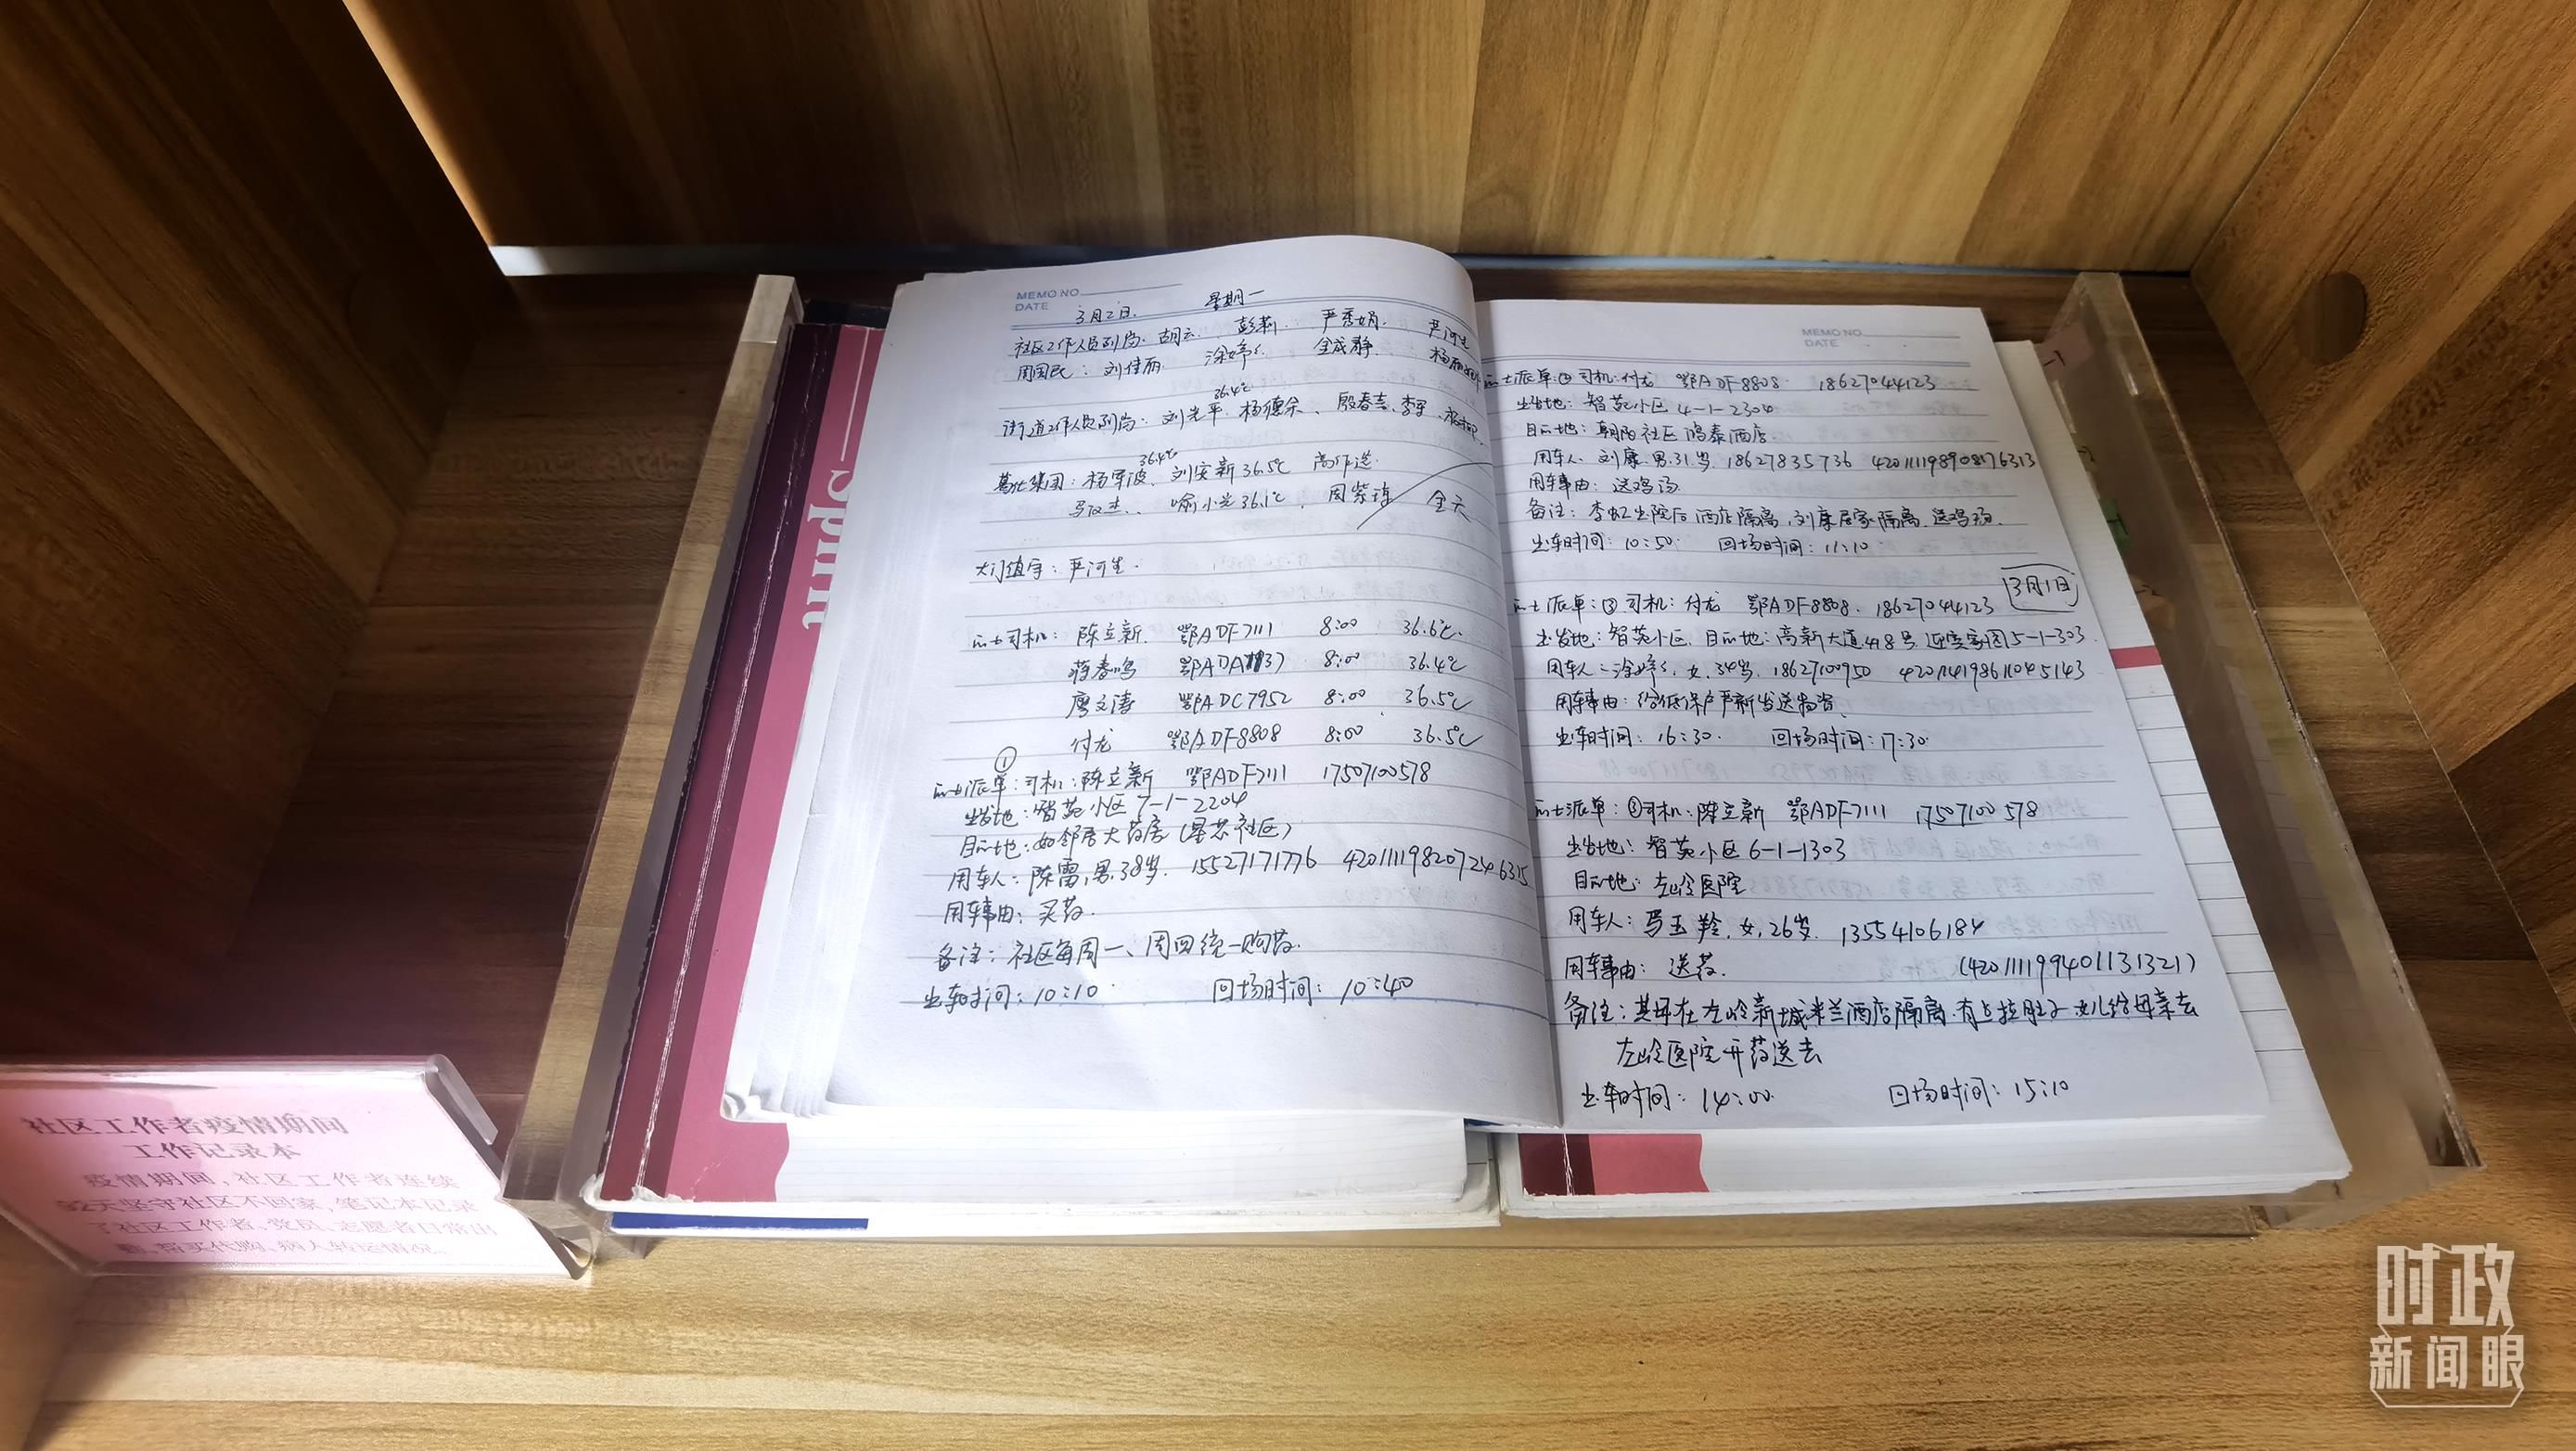 MEMO NO.
DATE
3月2日. 星期一
社区工作人员到岗: 胡云. 彭莉. 严秀娟. 严河生
周国民: 刘佳丽. 涂婷婷. 金成静.
36.4℃
街道工作人员到岗: 刘光平. 杨德余、殷春吉. 李军.
36.4℃
葛化集团: 杨军波. 刘安新 36.5℃
喻小光 36.1℃. 全天
大门值守: 严河生.
的士司机: 陈立新. 鄂ADF7111 8:00 36.6℃.
蒋春鸣 8:00 36.4℃
廖文涛 鄂ADC7952 8:00 36.5℃
付龙 鄂ADF8808 8:00 36.5℃
①
的士派单: 司机: 陈立新 鄂ADF7111 17507100578
出发地: 智苑小区 7-1-2204
目的地: 如邻居大药房 (星芯社区)
用车人: 陈雷, 男. 38岁. 15527171776
用车事由: 买药.
备注: 社区每周一、周四统一购药.
出车时间: 10:10 回场时间: 10:40
MEMO NO.
DATE
的士派单: ② 司机: 付龙 鄂ADF8808 18627044123
出发地: 智苑小区 4-1-2304
目的地: 朝阳社区 鸿泰酒店.
用车人 刘康. 男. 31岁. 18627835736 420111198908176313
用车事由: 送鸡汤
备注: 李虹出院后酒店隔离, 刘康居家隔离. 送鸡汤.
出车时间: 10:50 回场时间: 11:10
3月1日
的士派单: ③ 司机: 付龙 鄂ADF8808. 18627044123
出发地: 智苑小区. 目的地: 高新大道418号 迎宾家园5-1-303
用车人: 涂婷婷, 女. 34岁. 18627100950 420114198611045143
用车事由: 给低保户严新发送物资.
出车时间: 16:30. 回场时间: 17:30
的士派单: ③ 司机: 陈立新 鄂ADF7111 17507100578
出发地: 智苑小区 6-1-1303
目的地: 左岭医院
用车人: 马玉羚. 女, 26岁. 13554106184
用车事由: 送药. (420111199401131321)
备注: 其母在左岭新城米兰酒店隔离. 有点拉肚子. 女儿给母亲去
左岭医院开药送去
出车时间: 14:00. 回场时间: 15:10
Spirit
社区工作者疫情期间
工作记录本
疫情期间,社区工作者连续
92天坚守社区不回家,笔记本记录
了社区工作者、党员、志愿者日常出
勤、帮买代购、病人转运情况。
时政
新闻眼